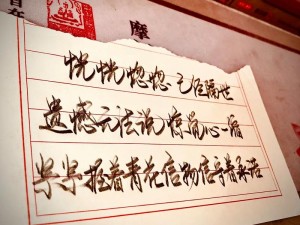 摩
恍恍惚惚 已经隔世
遗憾无法说 惊觉心一缩
紧紧握着青花信物 信守着承诺